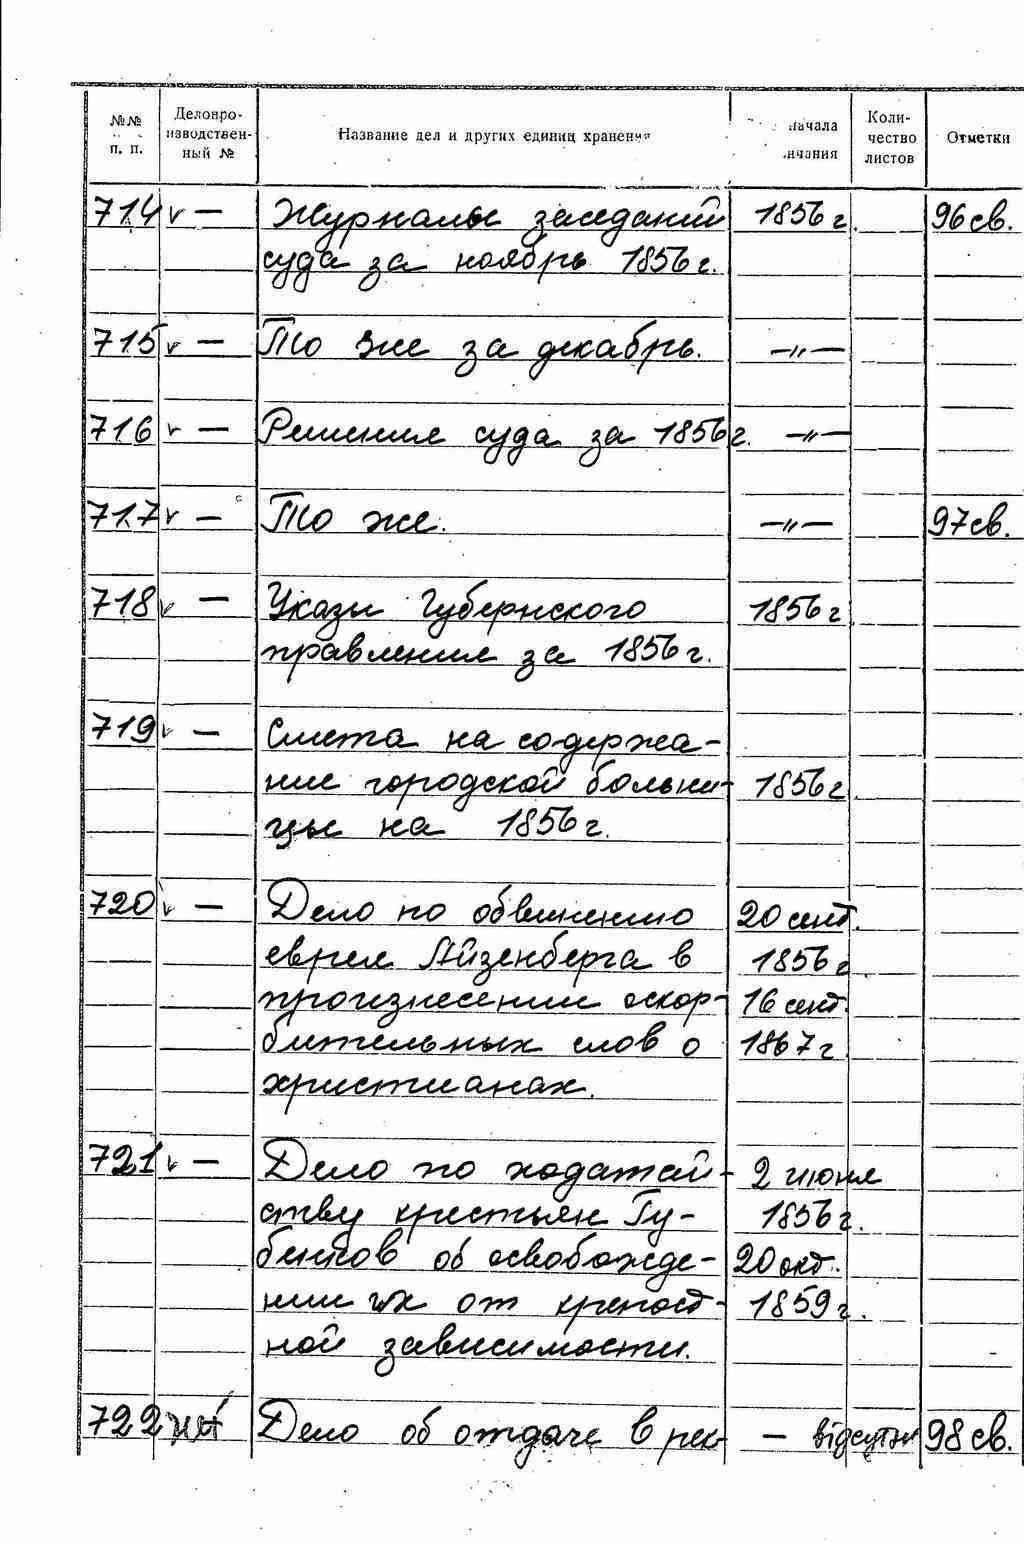 №№ п. п. Деловро- изводствен- ный № Название дел и других единиц хранения начала Коли- чество листов Отметки
714 v — Журналы заседаний 1856 г. 96 св.
суда за ноябрь 1856 г.
715 v — То же за декабрь. —"—
716 v — Решения суда за 1856 г. —"—
717 v — То же. —"— 97 св.
718 v — Указы Губернского 1856 г
правления за 1856 г.
719 v — Смета на содержа-
ние городской больни- 1856 г.
цы на 1856 г.
720 v — Дело по обвинению 20 сент.
еврея Айзенберга в 1856 г.
произнесении оскор- 16 сент.
бительных слов о 1867 г
христианах.
721 v — Дело по ходатай- 2 июня
ству крестьян Гу- 1856 г.
бенков об освобожде- 20 окт.
нии их от крепост- 1859 г.
ной зависимости.
722 нет Дело об отдаче в рек- — відсутн 98 св.